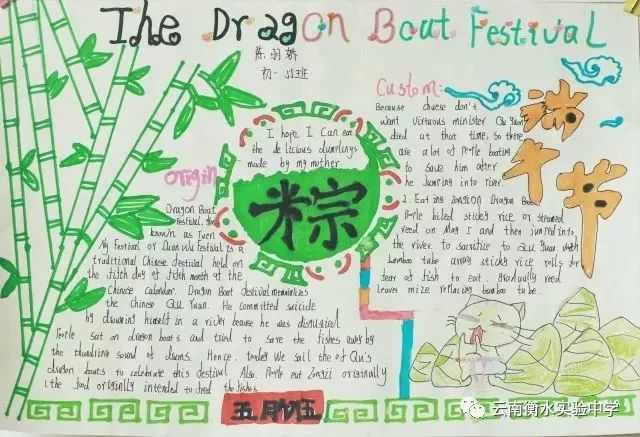 The Dragon Boat Festival
陈羽娇
初一.班
I hope I can eat
the delicious dumplings
made by my mother
粽
origin
Dragon Boat
Festival, the
known as Tuen
Ng Festival or Duan Wu Festival is a
traditional Chinese festival held on
the fifth day of fifth month of the
Chinese calander. Dragon Boat festival memorializes
the Chinese Qu Yuan. He committed suicide
by drowning himself in a river because he was
People sat on dragon boats and tried to save the fishes away by
the thundring sound of drums. Hence, today we sail the of Qu's
dragon boats to celebrate this festival. Also People eat Zongzi originally
the food originally intended to feed the fishes
Custom:
Because chuese don't
want virtuous minister Qu Yuan
died at that time, so there
are a lot of People boating
to save him after
he jumping into river.
2. Eating zongzion Dragon Boat
People biled sticky rice or streamed
reed on May 5 and then jumped into
the river to sacrifice to Qu Yuan with
bamboo tube array sticky rice rolls for
fear of fish to eat. gradually reed
Leaves mize replacing bamboo tube.
端午节
五月初五
云南衡水实验中学